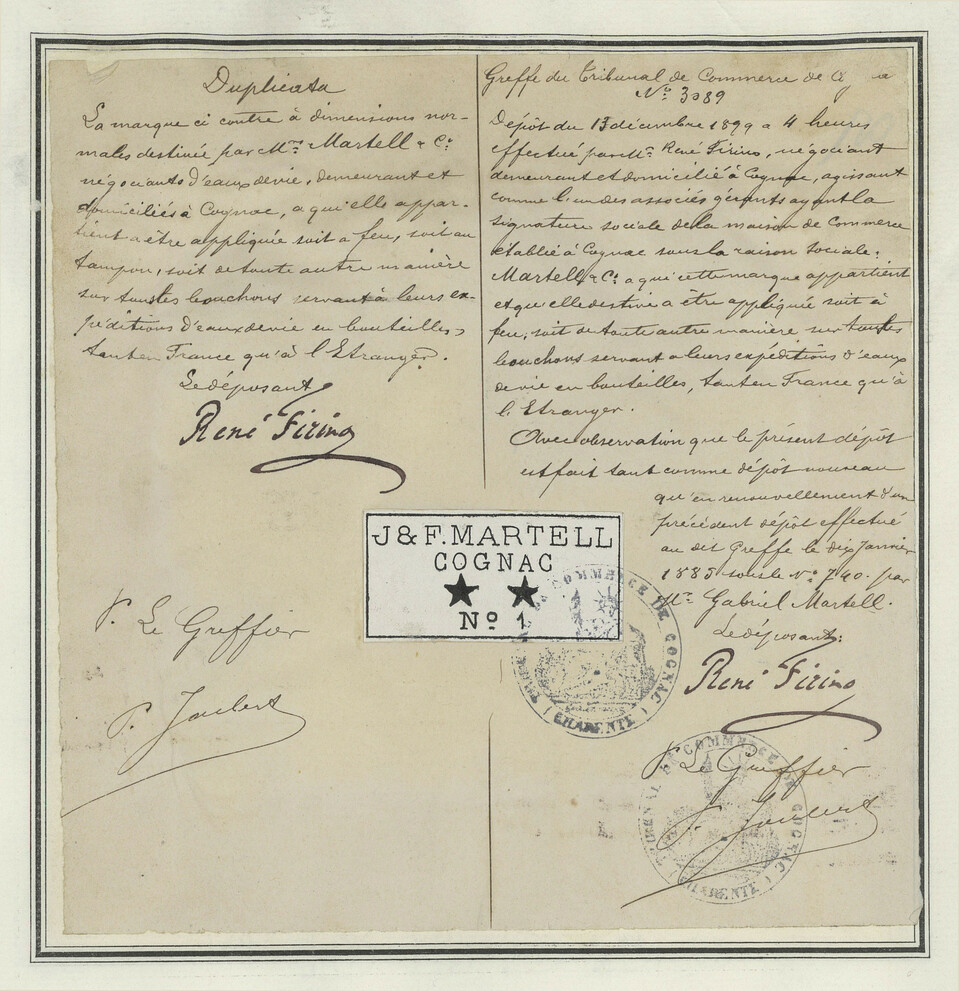 Duplicata
La marque ci contre à dimensions nor-
males destinée par Mrs Martell & Cie
négociants d'eaux de vie, demeurant et
domiciliés à Cognac, a qu'elle appar-
tient a être appliquée soit a feu, soit au
tampon, soit de toute autre manière
sur tous les bouchons servant à leurs ex-
péditions d'eaux de vie en bouteilles,
tant en France qu'à l'Etranger.
Le déposant,
René Firino
P. Le Greffier
P. Joubert
Greffe du Tribunal de Commerce de
No 3089
Dépôt du 13 décembre 1899 a 4 heures
effectué par Mr René Firino, négociant
demeurant et domicilié à Cognac, agissant
comme l'un des associés gérants ayant la
signature sociale de la maison de Commerce
établie à Cognac sous la raison sociale:
Martell & Cie a qui cette marque appartient
et qu'elle destine a être appliquée soit à
feu, soit de toute autre manière sur tous les
bouchons servant a leurs expéditions d'eaux
de vie en bouteilles, tant en France qu'à
l'Etranger.
Avec observation que le présent dépôt
est fait tant comme dépôt nouveau
qu'en renouvellement d'un
précédent dépôt effectué
au dit Greffe le dix Janvier
1885 sous le No 740. par
Mr Gabriel Martell.
Le déposant:
René Firino
P. Le Greffier
P. Joubert
J & F. MARTELL
COGNAC
★ ★
No 1
TRIBUNAL DE COMMERCE DE COGNAC
(CHARENTE)
TRIBUNAL DE COMMERCE DE COGNAC
(CHARENTE)